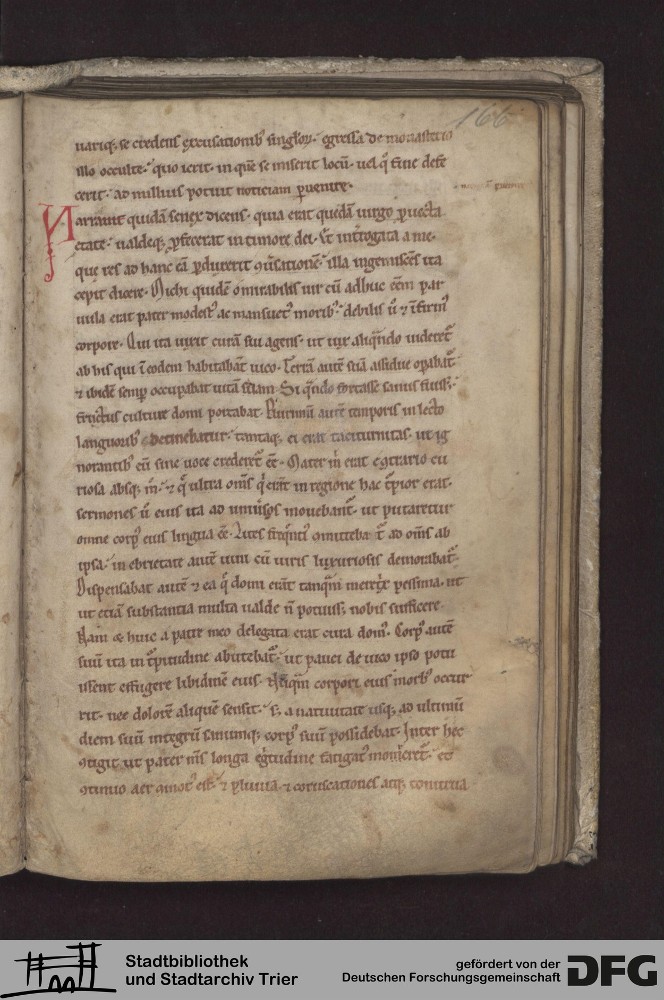 166
uariq; se credens excusationib' singlorꝝ. egressa de monasterio
illo occulte. quo ierit. in quē se miserit locū. uel q̊ fine defe
cerit. ad nullius potuit noticiam ꝑuenire.
Narrauit quidā senex dicens. quia erat quedā uirgo ꝓuecta
etate. ualdeq; ꝓfecerat in timore dei. Et int̄rogata a me.
que res ad hanc eā ꝑduxerit ꝯuersationē. illa ingemiscēs ita
cepit dicere. Michi quidē o mirabilis uir cū adhuc eēm par
uula erat pater modest' ac mansuet' morib'. debilis ū & īfirm'
corpore. Qui ita uixit curā sui agens. ut uix aliqn̄do uideret᷑
ab his qui ī eodem habitabāt uico. Terrā autē suā assidue oꝑabat᷑
& ibidē semꝑ occupabat uitā suam. Si qn̄do fortasse sanus fuiss;.
fructus culture domi portabat. Plurimū autē temporis in lecto
languorib' detinebatur. tantaq; ei erat taciturnitas. ut ig
norantib' eū sine uoce crederet᷑ eē. Mater m̄ erat e ꝯtrario cu
riosa absq; m̄. & q̄ ultra om̄s q̇ erāt in regione hac t᷑pior erat.
sermones ū eius ita ad uniūsos mouebant᷑. ut putaretur
omne corp' eius lingua eē. Lites freq̄nt' ꝯmitteba t᷑ ad om̄s ab
ipsa. in ebrietate autē uini cū uiris luxuriosis demorabat᷑.
Dispensabat autē & ea q̄ domi erāt tanq̄m meretx̓ pessima. ut
ut etiā substantia multa ualde n̄ potuiss; nobis sufficere.
Nam & huic a patre meo delegata erat cura dom'. Corp' autē
suū ita in t᷑pitudine abutebat᷑. ut pauci de uico ipso potu
issent effugere libidinē eius. Aliq̄m corpori eius morb' occur
rit. nec dolorē aliquē sensit. s; a natiuitate usq; ad ultimū
diem suū integrū sanumq; corp' suū possidebat. Inter hec
ꝯtigit ut pater m̄s longa eḡtudine fatigat' moriret᷑. et
ꝯtinuo aer ꝯmot' est. & pluuia. & coruscationes atq; tonitrua
Stadtbibliothek
und Stadtarchiv Trier
gefördert von der
Deutschen Forschungsgemeinschaft
DFG